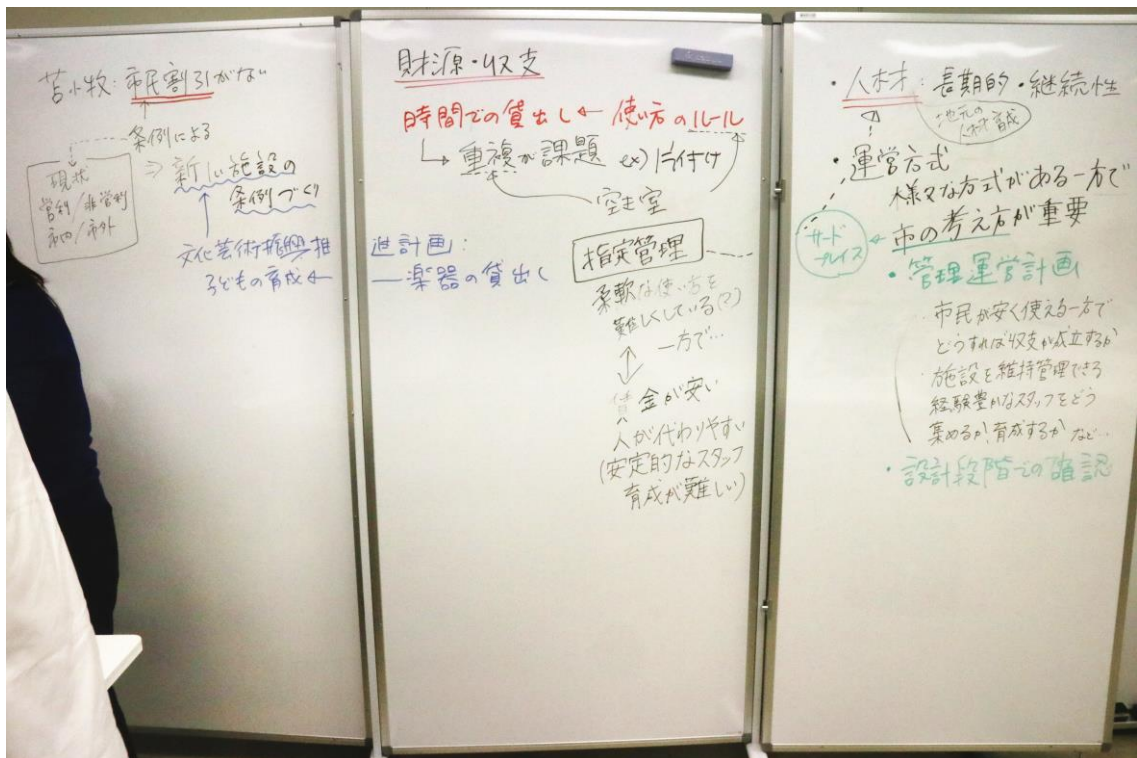 苫小牧:市民割引がない
条例による
現状
営利/非営利
市内/市外
⇒新しい施設の
条例づくり
文化芸術振興推進計画:
子どもの育成←楽器の貸出し
財源・収支
時間での貸出し←使い方のルール
重複が課題 ex)片付け
空き室
指定管理
柔軟な使い方を
難しくしている(?)
一方で…
賃金が安い
人が代わりやすい
(安定的なスタッフ
育成が難しい)
・人材:長期的・継続性
地元の
人材育成
・運営方式
様々な方式がある一方で
市の考え方が重要
サード
プレイス
・管理運営計画
・市民が安く使える一方で
どうすれば収支が成立するか
・施設を維持管理できる
経験豊かなスタッフをどう
集めるか、育成するか など…
・設計段階での確認